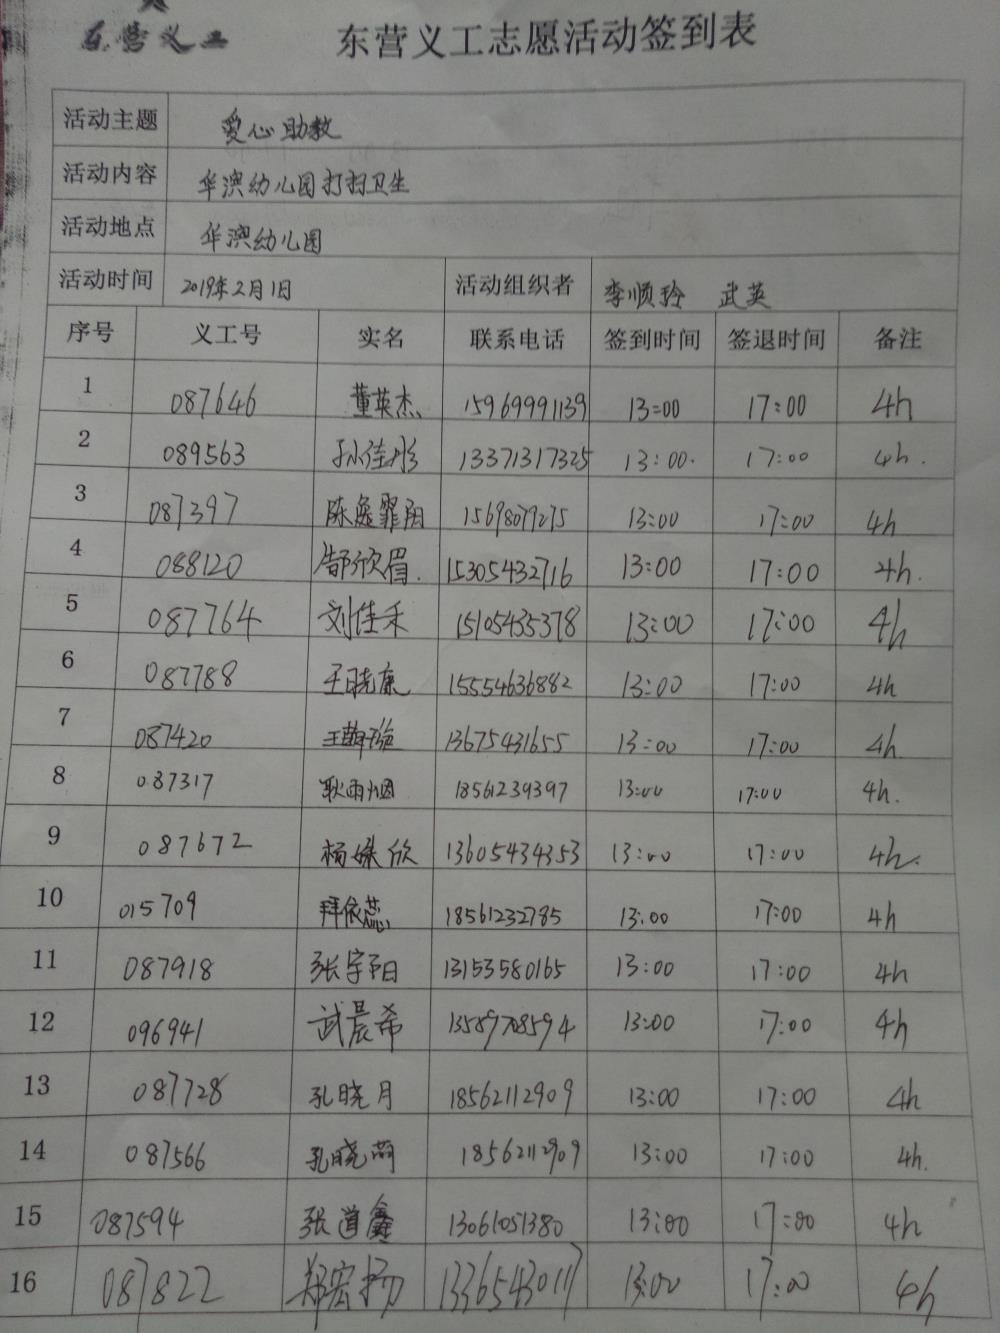 东营义工 东营义工志愿活动签到表
活动主题 爱心助教
活动内容 华澳幼儿园打扫卫生
活动地点 华澳幼儿园
活动时间 2019年2月1日 活动组织者 李顺玲 武英
序号 义工号 实名 联系电话 签到时间 签退时间 备注
1 087646 董英杰 15969991139 13:00 17:00 4h
2 089563 孙佳彤 13371317325 13:00. 17:00 4h.
3 087397 陈逸霏阳 15698079275 13:00 17:00 4h
4 088120 欣眉. 15305432716 13:00 17:00 4h.
5 087764 刘佳禾 15105435378 13:00 17:00 4h
6 087788 王晓康 15554636882 13:00 17:00 4h
7 087420 王 13675431655 13:00 17:00 4h
8 087317 耿雨烟 18561239397 13:00 17:00 4h.
9 087672 杨姝欣 13605434353 13:00 17:00 4h.
10 015709 拜依蕊 18561232785 13:00 17:00 4h
11 087918 张宇阳 13153580165 13:00 17:00 4h
12 096941 武晨希 13589708594 13:00 17:00 4h
13 087728 孔晓月 18562112909 13:00 17:00 4h
14 087566 孔晓萌 18562112909 13:00 17:00 4h.
15 087594 张道鑫 13061051380 13:00 17:00 4h
16 087822 郑宏扬 13365430117 13:00 17:00 4h